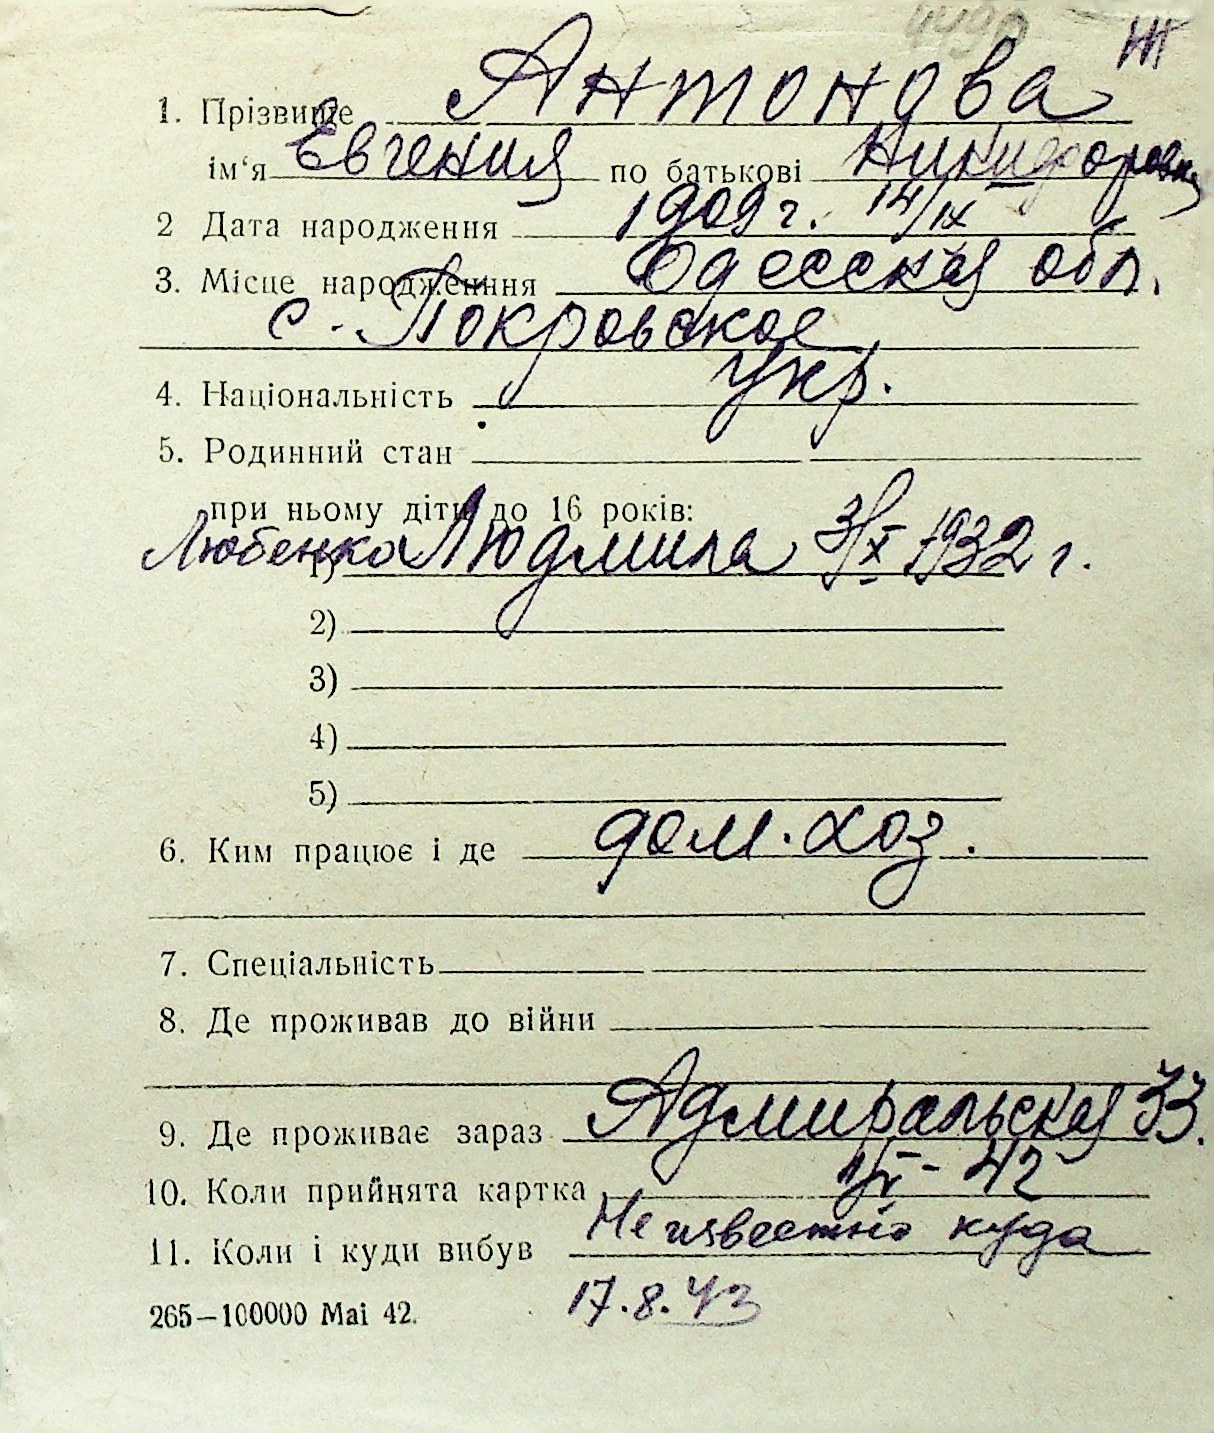 449
Ж
1. Прізвище Антонова
ім'я Евгения по батькові Никифоровна
2 Дата народження 1909 г. 14/IX
3. Місце народженння Одесская обл.
с. Покровское
4. Національність укр.
5. Родинний стан
при ньому діти до 16 років:
Любенко 1) Людмила 3/X 1932 г.
2)
3)
4)
5)
6. Ким працює і де дом. хоз.
7. Спеціальність
8. Де проживав до війни
9. Де проживає зараз Адмиральская 33.
10. Коли прийнята картка - 42
11. Коли і куди вибув Неизвестно куда
265—100000 Mai 42. 17.8.43